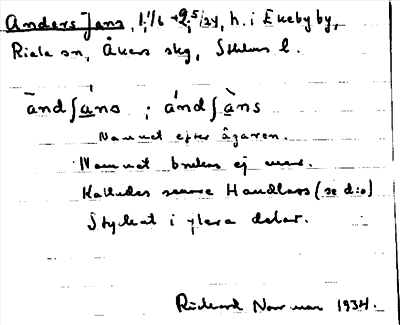 Anders Jans, 1 1/6 + 2,5/24, h. i Ekeby by,
Riala sn, Åkers skg, Sthlms l.
ānd∫ā̀ns ; ánd∫ā̀ns
Namnet efter ägaren.
Namnet brukas ej mera.
Kalludes senare Handlars (se d:o)
Styckat i flera delar.
Rickard Norman 1934.